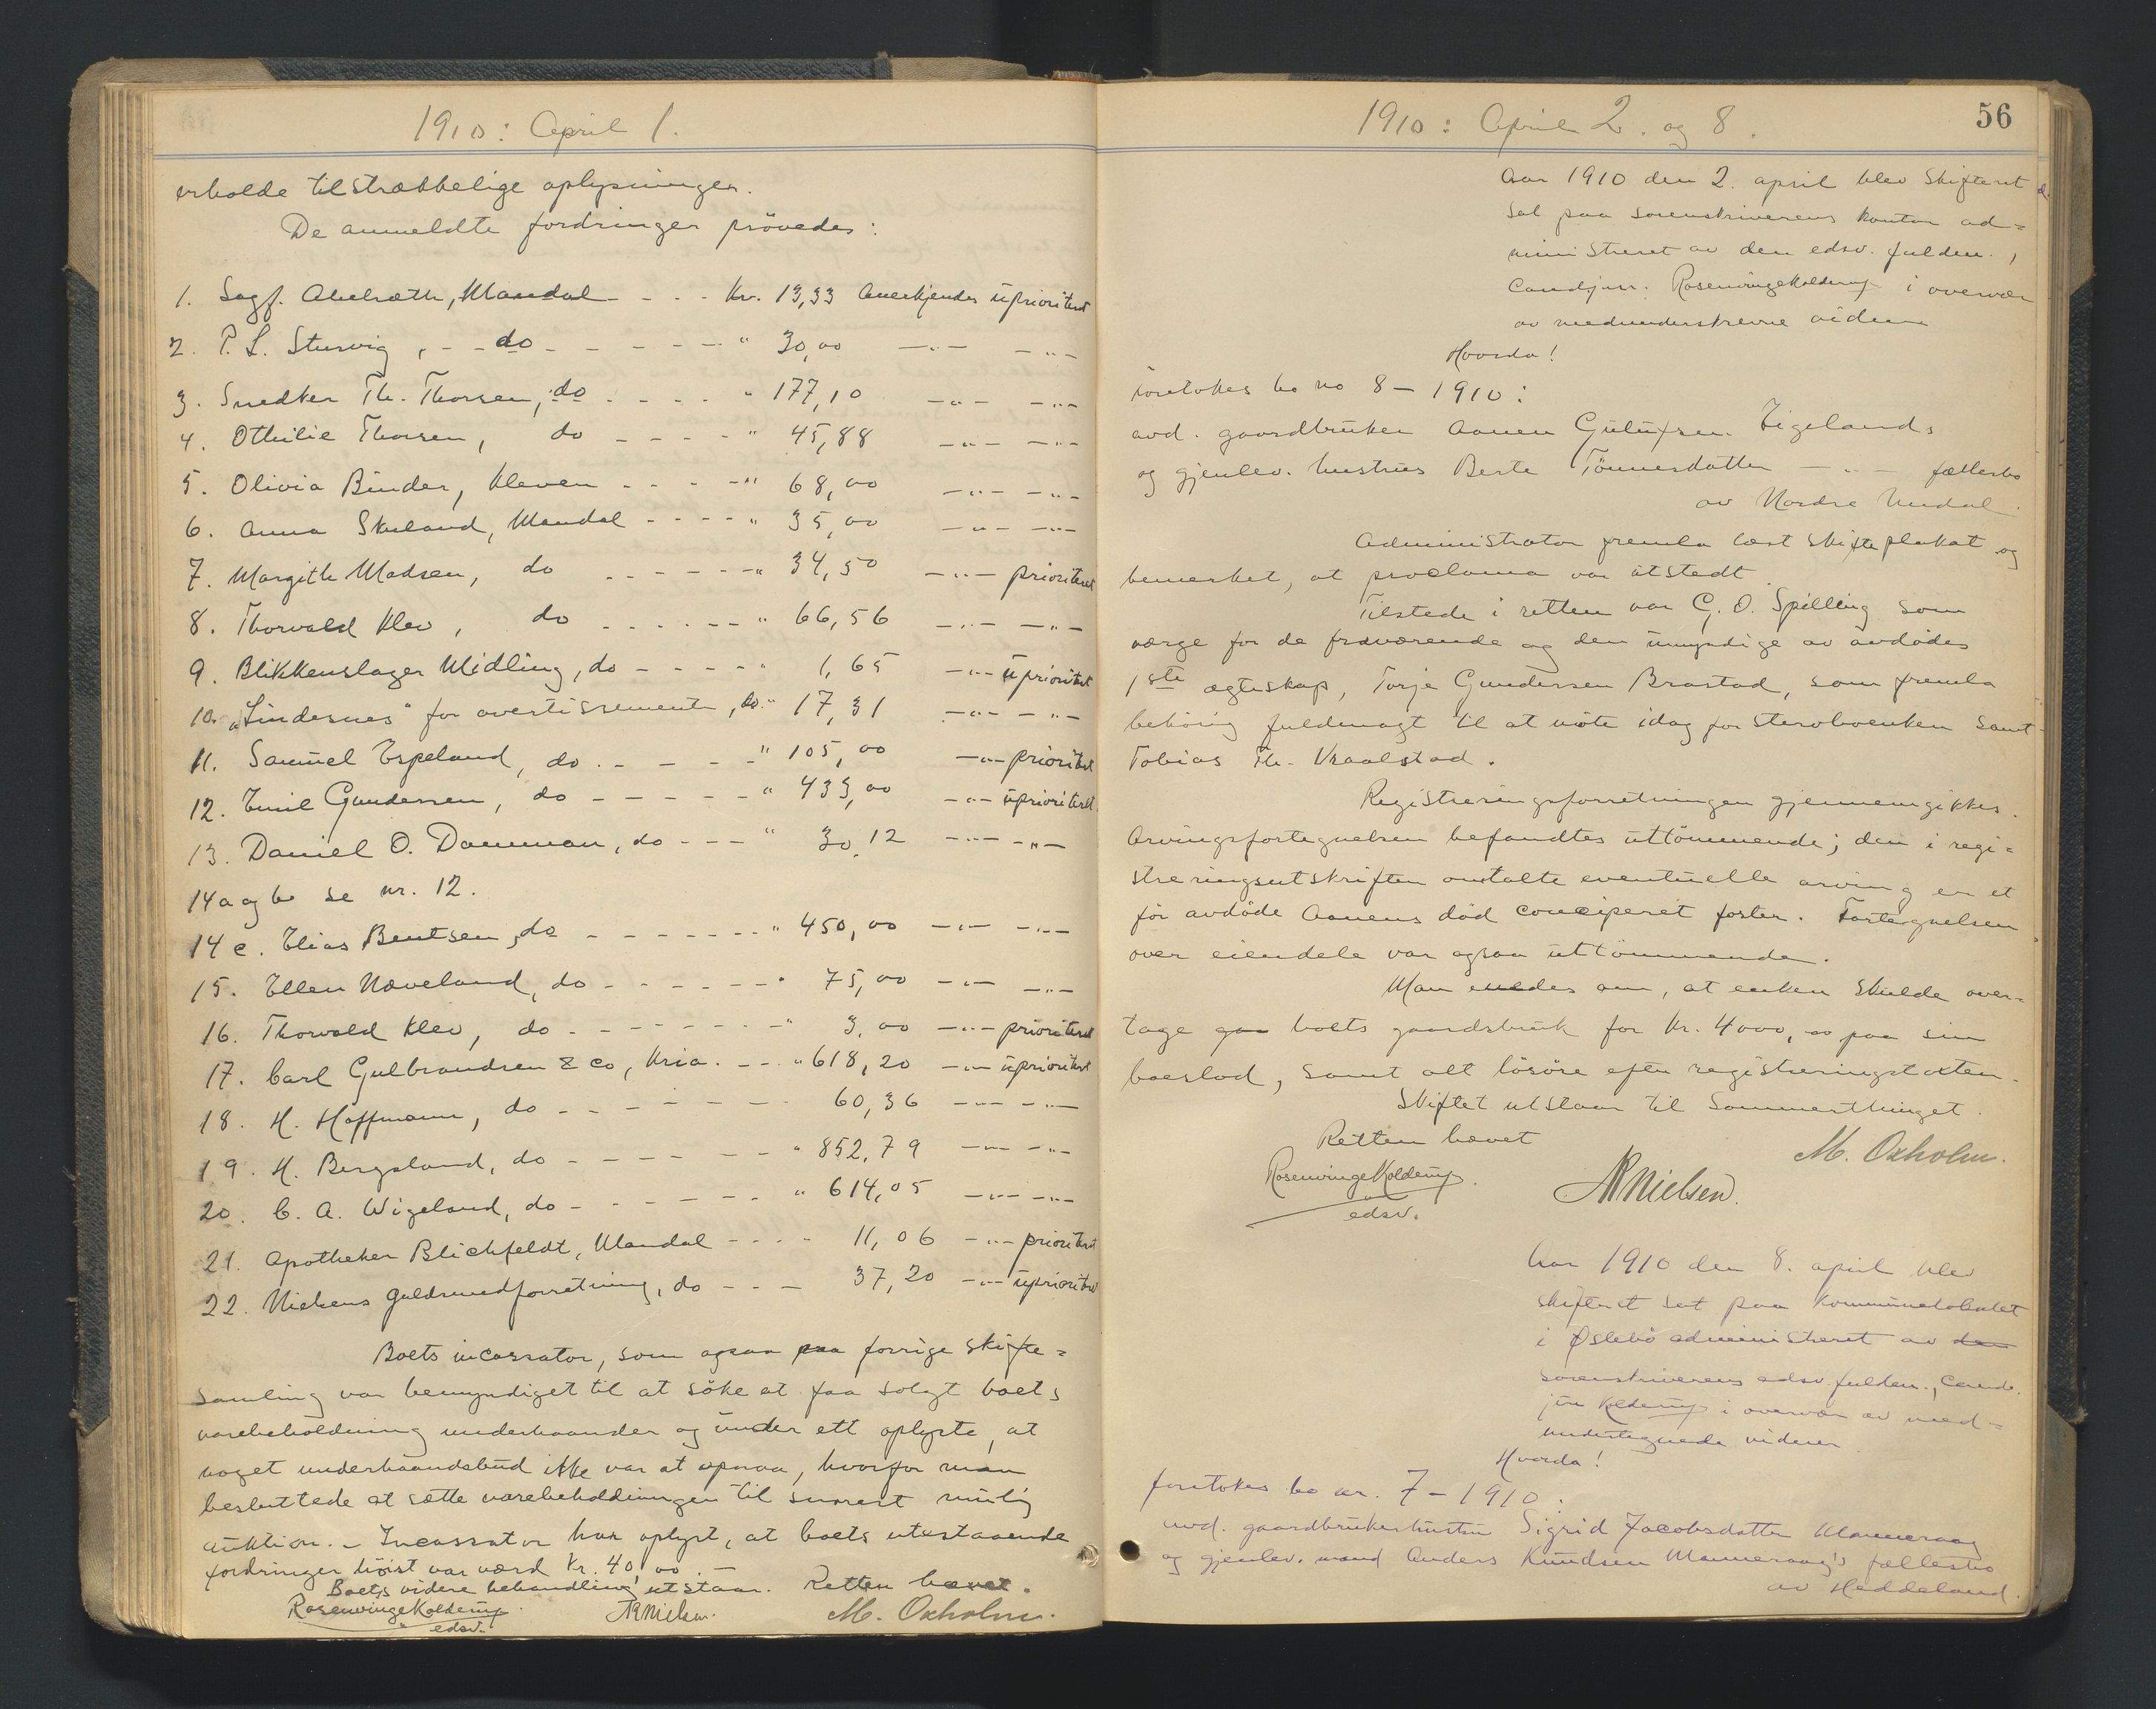 1910: April 1.
erholde tilstrækkelige oplysninger.
De anmeldte fordringer prövedes:
1. Sagf. Abelseth, Mandal - - - Kr. 13,33 Anerkjendes uprioritert
2. P. L. Stusvig, - - do - - - - - " 30,00 -"- -"-
3. Snedker Th. Thorsen, do - - - - " 177,10 -"- -"-
4. Othilie Thorsen, do - - - - " 45,88 -"- -"-
5. Olivia Binder, Kleven - - - - " 68,00 -"- -"-
6. Anna Skuland, Mandal - - - - " 35,00 -"- -"-
7. Margith Madsen, do - - - - - " 34,50 -"- prioritert
8. Thorvald Klev, do - - - - - " 66,56 -"- -"-
9. Blikkenslager Midling, do - - - - " 1,65 -"- uprioritert
10. "Lindesnes" for avertissement, do " 17,31 -"- -"-
11. Samuel Espeland, do - - - - " 105,00 -"- prioritert
12. Emil Gundersen, do - - - - - " 433,00 -"- uprioritert
13. Daniel O. Damman, do - - - " 30,12 -"- -"-
14 a og b se nr. 12.
14 c. Elias Bentsen, do - - - - - - " 450,00 -"- -"-
15. Ellen Næveland, do - - - - - - " 75,00 -"- -"-
16. Thorvald Klev, do - - - - - - " 3,00 -"- prioritert
17. Carl Gulbrandsen & Co, Kria. - - " 618,20 -"- uprioritert
18. H. Hoffmann, do - - - - - - 60,36 -"- -"-
19. H. Bergsland, do - - - - - - " 852,79 -"- -"-
20. C. A. Wigeland, do - - - - - " 614,05 -"- -"-
21. Apotheker Blichfeldt, Mandal - - - - 11,06 -"- prioritert
22. Nielsens guldsmedforretning, do - - - 37,20 -"- uprioritert
Boets incassator, som ogsaa paa forrige skifte=
samling var bemyndiget til at söke at faa solgt boets
varebeholdning underhaanden og under ett oplyste, at
noget underhaandsbud ikke var at opnaa, hvorfor man
besluttede at sætte varebeholdningen til snarest mulig
auktion. - Incassator har oplyst, at boets utestaaende
fordringer höist var værd kr. 40,00. -
Boets videre behandling utstaar. Retten hævet.
Rosenvinge Kolderup
edsv.
NRNielsen. M. Oxholm.
1910: April 2. og 8.
56
Aar 1910 den 2. april blev skifteret
sat paa sorenskriverens kontor ad=
ministreret av den edsv. fuldm.,
Cand. jur. Rosenvinge Kolderup i overvær
av medunderskrevne vidner
Hvorda!
foretokes bo no 8 - 1910:
avd. gaardbruker Aanen Gulufsen Eigelands
og gjenlev. hustrus Berte Tönnesdatter -"- fællesbo
av Nordre Undal.
Administrator fremla læst skifteplakat og
bemerket, at proclama var utstedt.
Tilstede i retten var G. O. Spilling som
værge for de fraværende og den umyndige av avdödes
1ste ægteskap, Torje Gundersen Brastad, som fremla
behörig fuldmagt til at möte idag for stervboenken samt
Tobias Th. Vraalstad.
Registreringsforretningen gjennemgikkes.
Arvingsfortegnelsen befandtes uttömmende; den i regi=
streringsutskriften omtalte eventuelle arving er et
för avdöde Aanens död conciperet foster. Fortegnelsen
over eiendele var ogsaa uttömmende.
Man enedes om, at enken skulde over=
tage boets gaardsbruk for kr. 4000,00 paa sin
boeslod, samt alt lösöre efter registreringstaksten.
Skiftet utstaar til Sommerthinget.
Retten hævet
Rosenvinge Kolderup.
edsv.
NRNielsen. M. Oxholm.
Aar 1910 den 8. april blev
skifteret sat paa kommunelokalet
i Øslebö administreret av den
sorenskriverens edsv. fuldm., Cand.
jur Kolderup i overvær av med=
undertegnede vidner
Hvorda!
foretokes bo nr. 7 - 1910:
avd. gaardbrukerhustru Sigrid Jacobsdatter Manneraag
og gjenlev. mand Anders Knudsen Manneraag's fællesbo
av Heddeland.